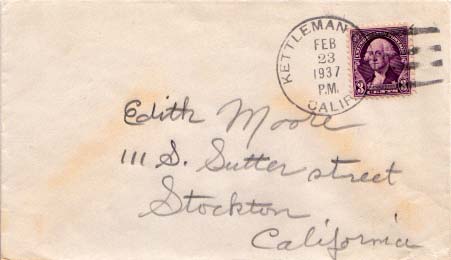 KETTLEMAN
FEB
23
1937
P.M.
CALIF.
3 3
Edith Moore
111 S. Sutter street
Stockton
California